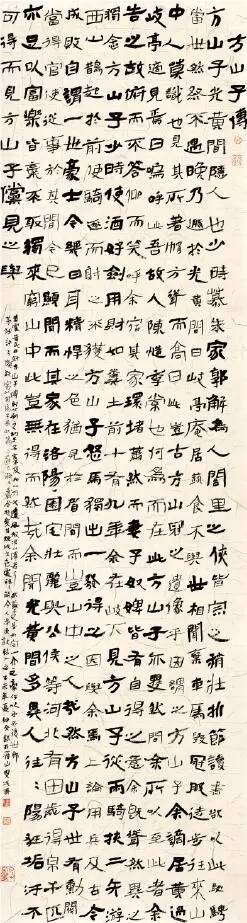 方山子傳
方山子光黄間隱人也少時慕朱家郭解為人閭里之俠皆宗之稍壯折節讀書欲以此馳騁
當世然終不遇晚乃遯於光黄間曰岐亭庵居蔬食不與世相聞棄車馬毀冠服徒步往來山
中人莫識也見其所著帽方聳而高曰此豈古方山冠之遺像乎因謂之方山子余謫居於黄過
岐亭適見焉曰嗚呼此吾故人陳慥季常也何為而在此方山子亦矍然問余所以至此者余
告之故俯而不答仰而笑呼余宿其家環堵蕭然而妻子奴婢皆有自得之意余既聳然異之
獨念方山子少時使酒好劍用財如糞土前十有九年余在岐下見方山子從兩騎挾二矢游
西山鵲起於前使騎逐而射之不獲方山子怒馬獨出一發得之因與余馬上論用兵及古今
成敗自謂一世豪士今幾日耳精悍之色猶見於眉間而豈山中之人哉然方山子世有勳閥
當得官使從事於其間今已顯聞而其家在洛陽園宅壯麗與公侯等河北有田歲得帛千匹
亦足以富樂皆棄不取獨來窮山中此豈無得而然哉余聞光黄間多異人往往陽狂垢污不
可得而見方山子儻見之與